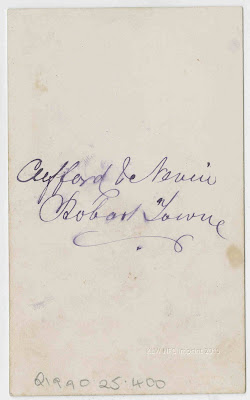 Clifford & Nevin
Hobart Town
Q1990.25.400